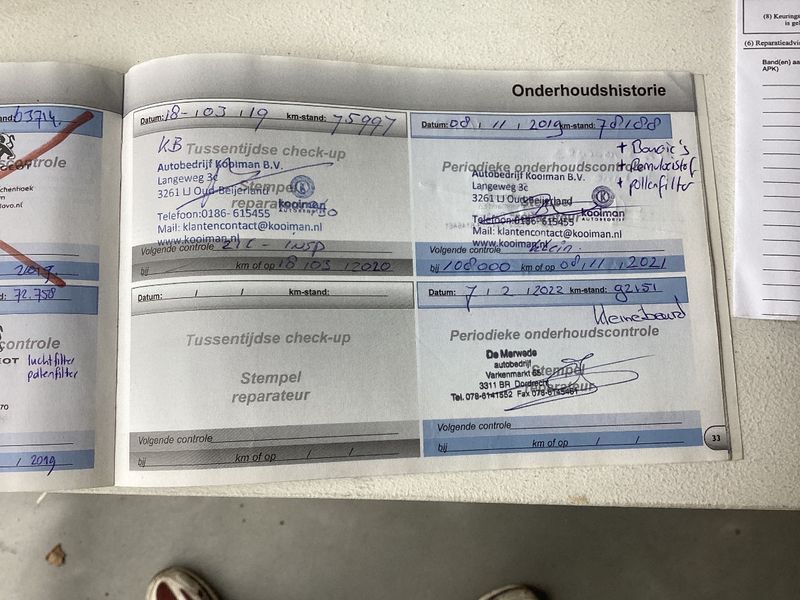 (8) Keurings
is gel
(6) Reparatieadvi
Band(en) aa
APK)
Onderhoudshistorie
Datum: 18-103 119 km-stand: 75997
KB Tussentijdse check-up
Autobedrijf Kooiman B.V.
Langeweg 3c
3261 LJ Oud-Beijerland
Stempel
reparateur
kooiman
AUTOBEDRIJF
Telefoon:0186- 615455
Mail: klantencontact@kooiman.nl
www.kooiman.nl
Volgende controle
bij km of op 18 103 12020
Datum: 08 / 11 / 2019 km-stand: 78188
Periodieke onderhoudscontrole
+ pollenfilter
Autobedrijf Kooiman B.V.
Langeweg 3c
3261 LJ Oud-Beijerland
Stempel
reparateur
kooiman
AUTOBEDRIJF
Telefoon:0186- 615455
Mail: klantencontact@kooiman.nl
www.kooiman.nl
Volgende controle klein
bij 108000 km of op 08 / 11 / 2021
Datum: / / km-stand:
Tussentijdse check-up
Stempel
reparateur
Volgende controle
bij km of op / /
Datum: 7 / 2 / 2022 km-stand: 92151
kleine beurd
Periodieke onderhoudscontrole
De Merwede
autobedrijf
Varkenmarkt 65
3311 BR Dordrecht
Tel. 078-6141552 Fax 078-6145461
Stempel
reparateur
Volgende controle
bij km of op / /
33
63714
controle
2019
72.758
controle
luchtfilter
pollenfilter
70
/ 2019